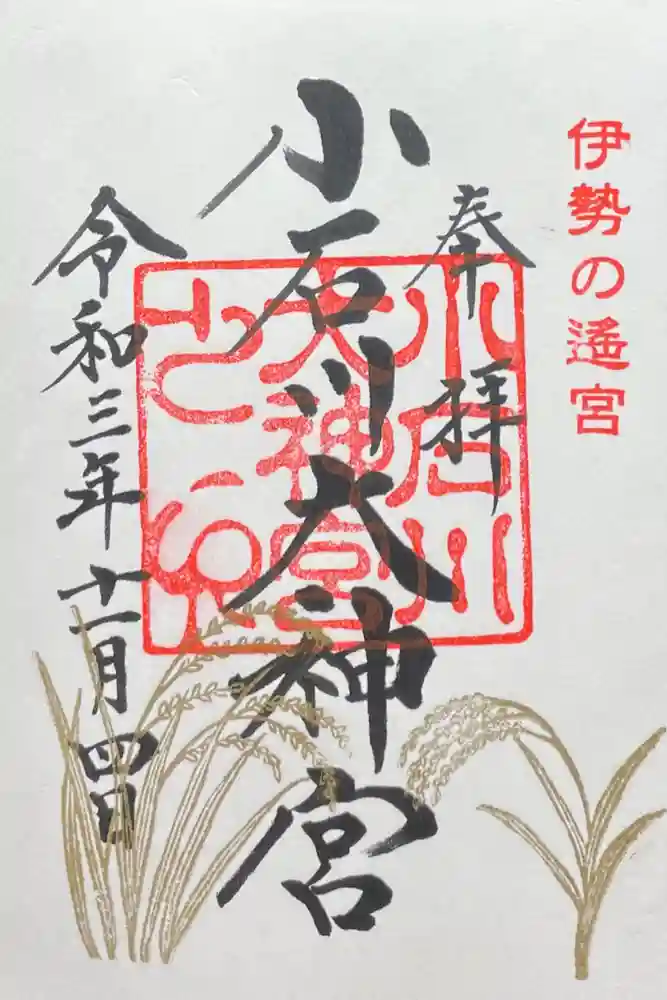 伊勢の遙宮
奉拝
小石川大神宮
小石川
大神宮
之印
令和三年十一月四日